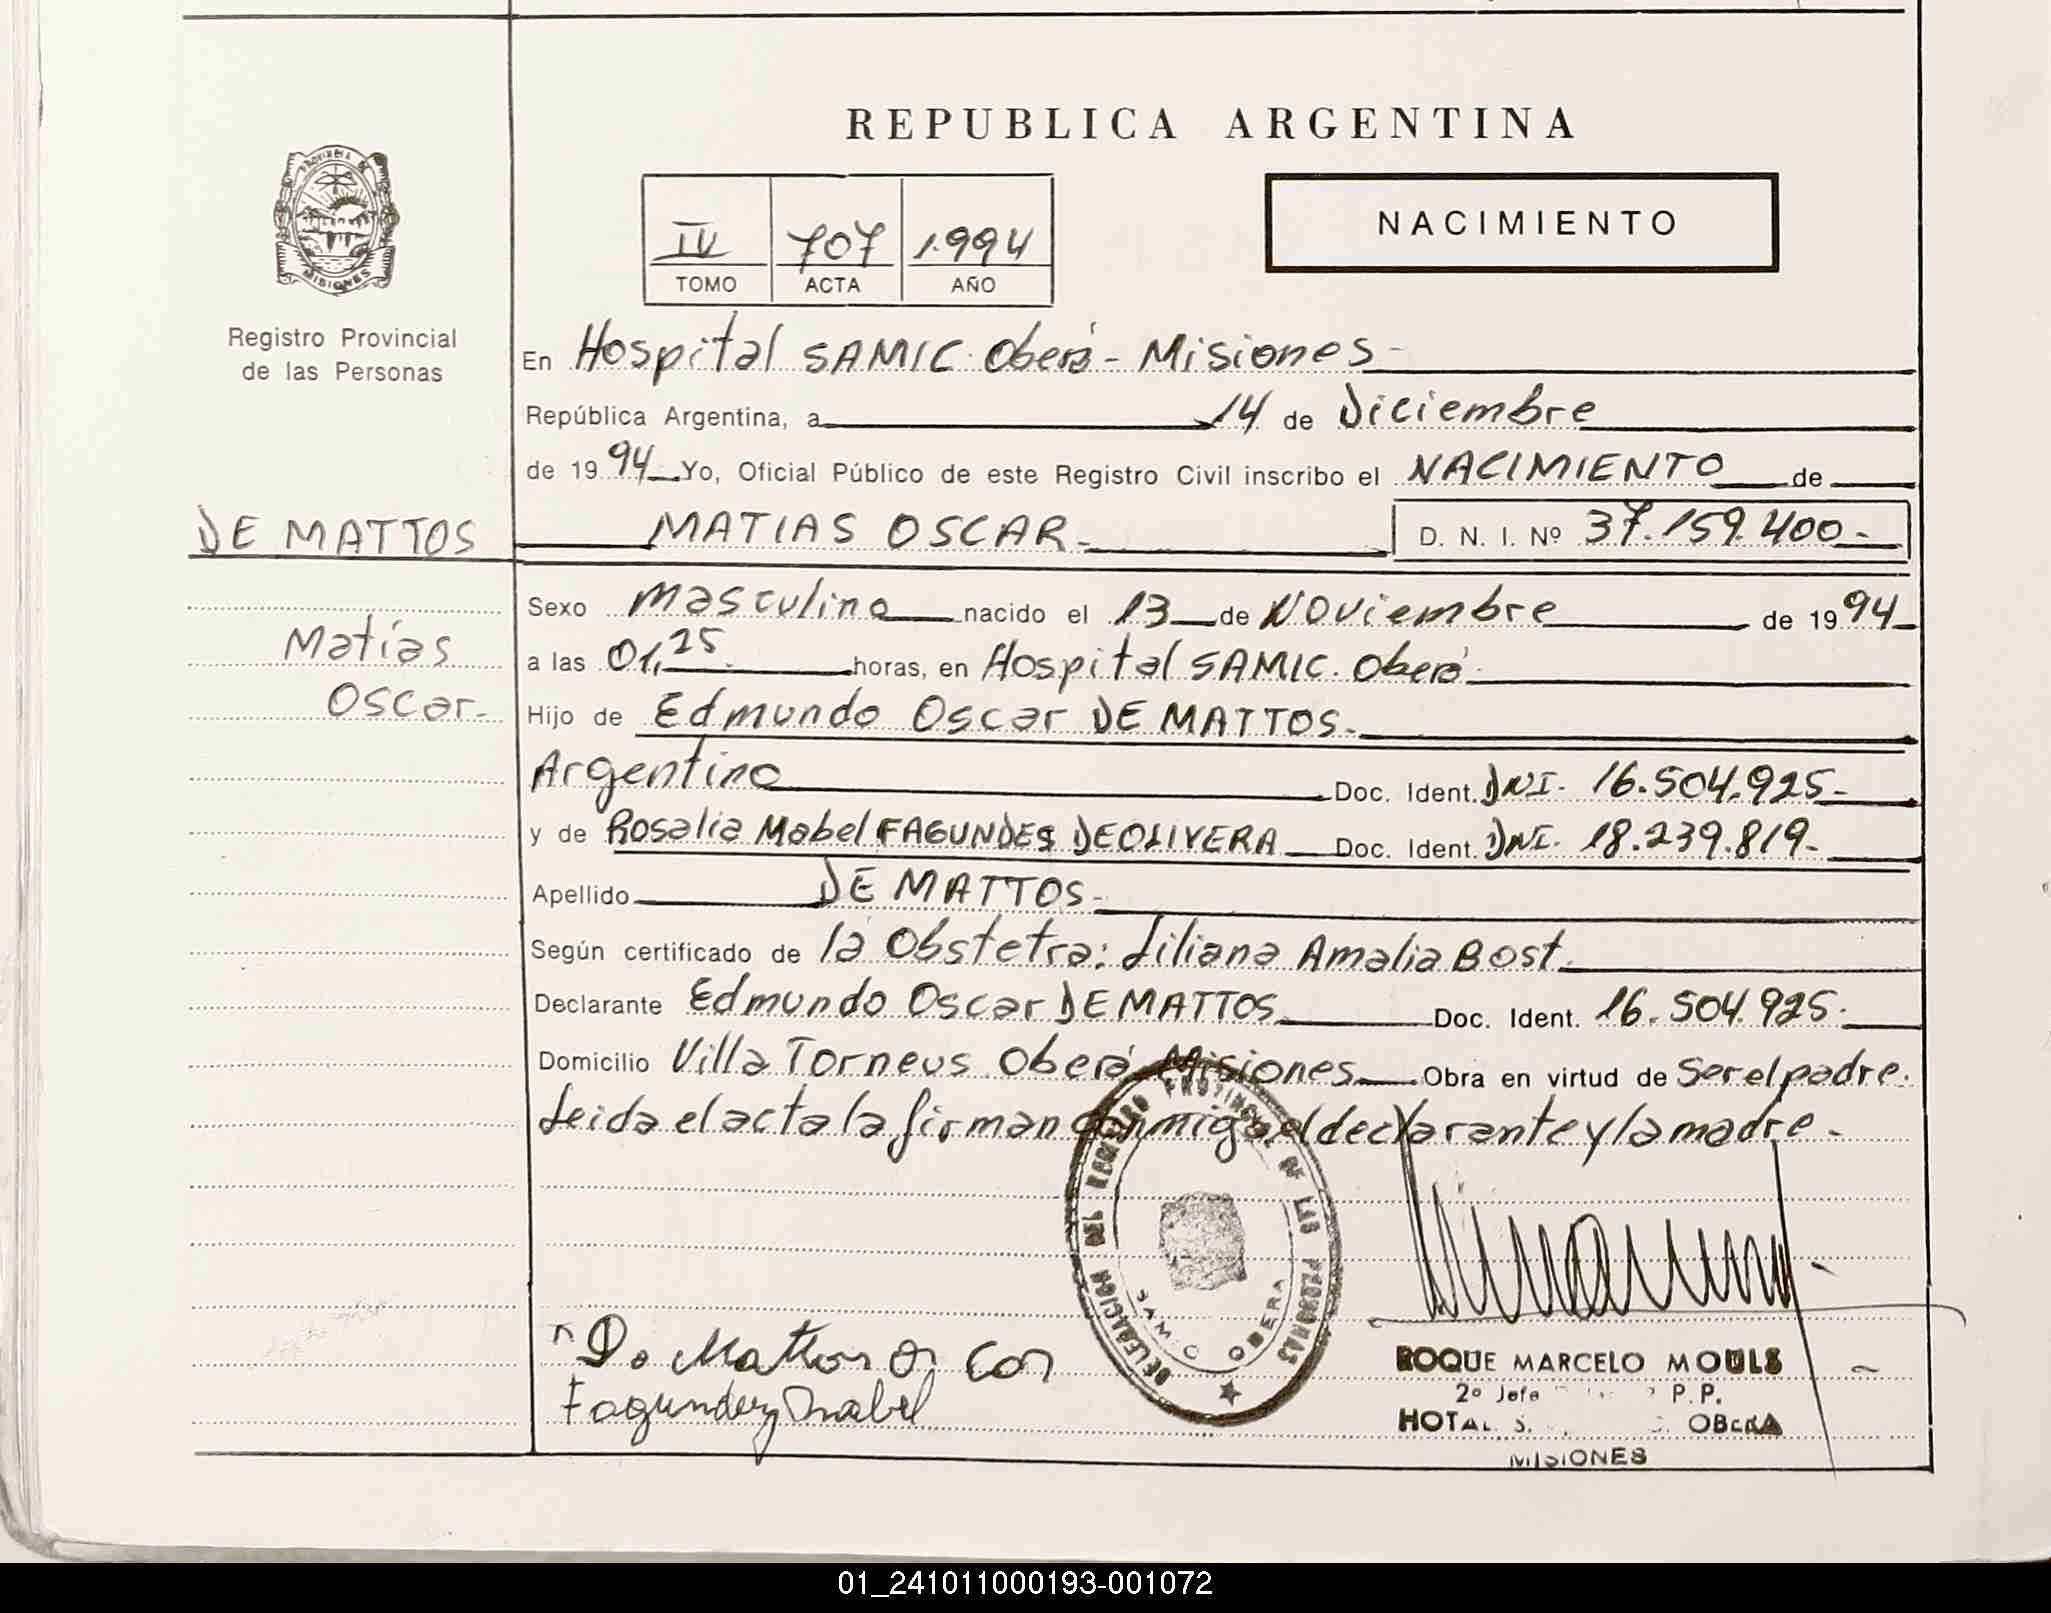 REPUBLICA ARGENTINA
PROVINCIA DE
MISIONES
Registro Provincial
de las Personas
IV 707 1.994
TOMO ACTA AÑO
NACIMIENTO
En Hospital SAMIC. Oberá - Misiones -
República Argentina, a 14 de Diciembre
de 19 94 Yo, Oficial Público de este Registro Civil inscribo el NACIMIENTO de
DE MATTOS
MATIAS OSCAR - D. N. I. Nº 37.159.400 -
Matías
Oscar -
Sexo Masculino nacido el 13 de Noviembre de 19 94
a las 01,25 horas, en Hospital SAMIC. Oberá -
Hijo de Edmundo Oscar DE MATTOS -
Argentino Doc. Ident. DNI. 16.504.925 -
y de Rosalia Mabel FAGUNDES DEOLIVERA Doc. Ident. DNI. 18.239.819 -
Apellido DE MATTOS -
Según certificado de la Obstetra: Liliana Amalia Bost.
Declarante Edmundo Oscar DE MATTOS Doc. Ident. 16.504.925 -
Domicilio Villa Torneus Oberá Misiones Obra en virtud de Ser el padre.
Leida el acta la firman conmigo el declarante y la madre -
DELEGACION DEL REGISTRO PROVINCIAL DE LAS PERSONAS
SAMIC OBERA
Fagundez Mabel
ROQUE MARCELO MOULS
2º Jefe P. P.
OBERA
MISIONES
01_241011000193-001072